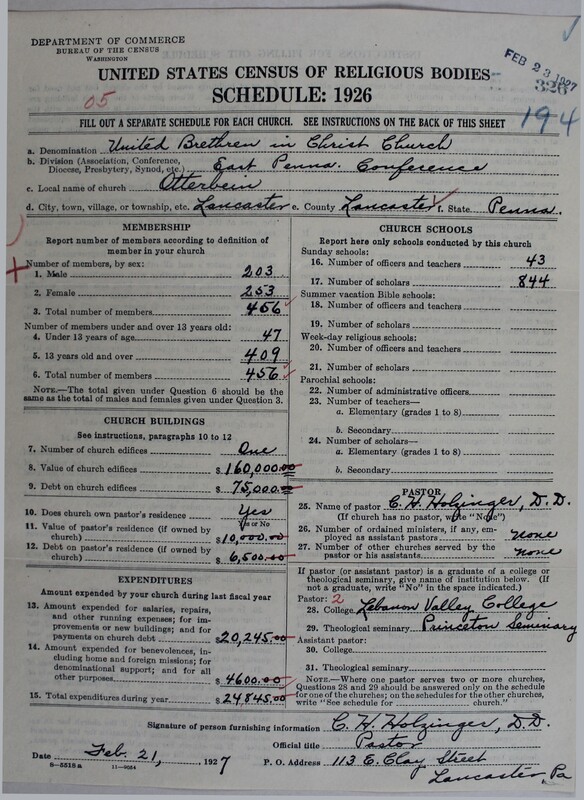 DEPARTMENT OF COMMERCE
BUREAU OF THE CENSUS
WASHINGTON
FEB 23 1927
326
UNITED STATES CENSUS OF RELIGIOUS BODIES
SCHEDULE: 1926
05
194
FILL OUT A SEPARATE SCHEDULE FOR EACH CHURCH. SEE INSTRUCTIONS ON THE BACK OF THIS SHEET
a. Denomination United Brethren in Christ Church
b. Division (Association, Conference, Diocese, Presbytery, Synod, etc.) East Penna. Conference
c. Local name of church Otterbein
d. City, town, village, or township, etc. Lancaster e. County Lancaster f. State Penna.
MEMBERSHIP
Report number of members according to definition of member in your church
Number of members, by sex:
1. Male 203
2. Female 253
3. Total number of members 456
Number of members under and over 13 years old:
4. Under 13 years of age 47
5. 13 years old and over 409
6. Total number of members 456
NOTE.—The total given under Question 6 should be the same as the total of males and females given under Question 3.
CHURCH BUILDINGS
See instructions, paragraphs 10 to 12
7. Number of church edifices One
8. Value of church edifices $ 160,000.00
9. Debt on church edifices $ 75,000.00
10. Does church own pastor's residence? Yes
Yes or No
11. Value of pastor's residence (if owned by church) $ 10,000.00
12. Debt on pastor's residence (if owned by church) $ 6,500.00
EXPENDITURES
Amount expended by your church during last fiscal year
13. Amount expended for salaries, repairs, and other running expenses; for improvements or new buildings; and for payments on church debt $ 20,245.00
14. Amount expended for benevolences, including home and foreign missions; for denominational support; and for all other purposes $ 4600.00
15. Total expenditures during year $ 24845.00
CHURCH SCHOOLS
Report here only schools conducted by this church
Sunday schools:
16. Number of officers and teachers 43
17. Number of scholars 844
Summer vacation Bible schools:
18. Number of officers and teachers
19. Number of scholars
Week-day religious schools:
20. Number of officers and teachers
21. Number of scholars
Parochial schools:
22. Number of administrative officers
23. Number of teachers—
a. Elementary (grades 1 to 8)
b. Secondary
24. Number of scholars—
a. Elementary (grades 1 to 8)
b. Secondary
PASTOR
25. Name of pastor C. H. Holzinger, D.D.
(If church has no pastor, write "None")
26. Number of ordained ministers, if any, employed as assistant pastors none
27. Number of other churches served by the pastor or his assistants none
If pastor (or assistant pastor) is a graduate of a college or theological seminary, give name of institution below. (If not a graduate, write "No" in the space indicated.)
Pastor: 2
28. College Lebanon Valley College
29. Theological seminary Princeton Seminary
Assistant pastor:
30. College
31. Theological seminary
NOTE.—Where one pastor serves two or more churches, Questions 28 and 29 should be answered only on the schedule for one of the churches; on the schedules for the other churches, write "See schedule for ........ church."
Signature of person furnishing information C. H. Holzinger, D.D.
Official title Pastor
Date Feb. 21, 1927 P. O. Address 113 E. Clay Street
Lancaster Pa
8-5518a 11-9064